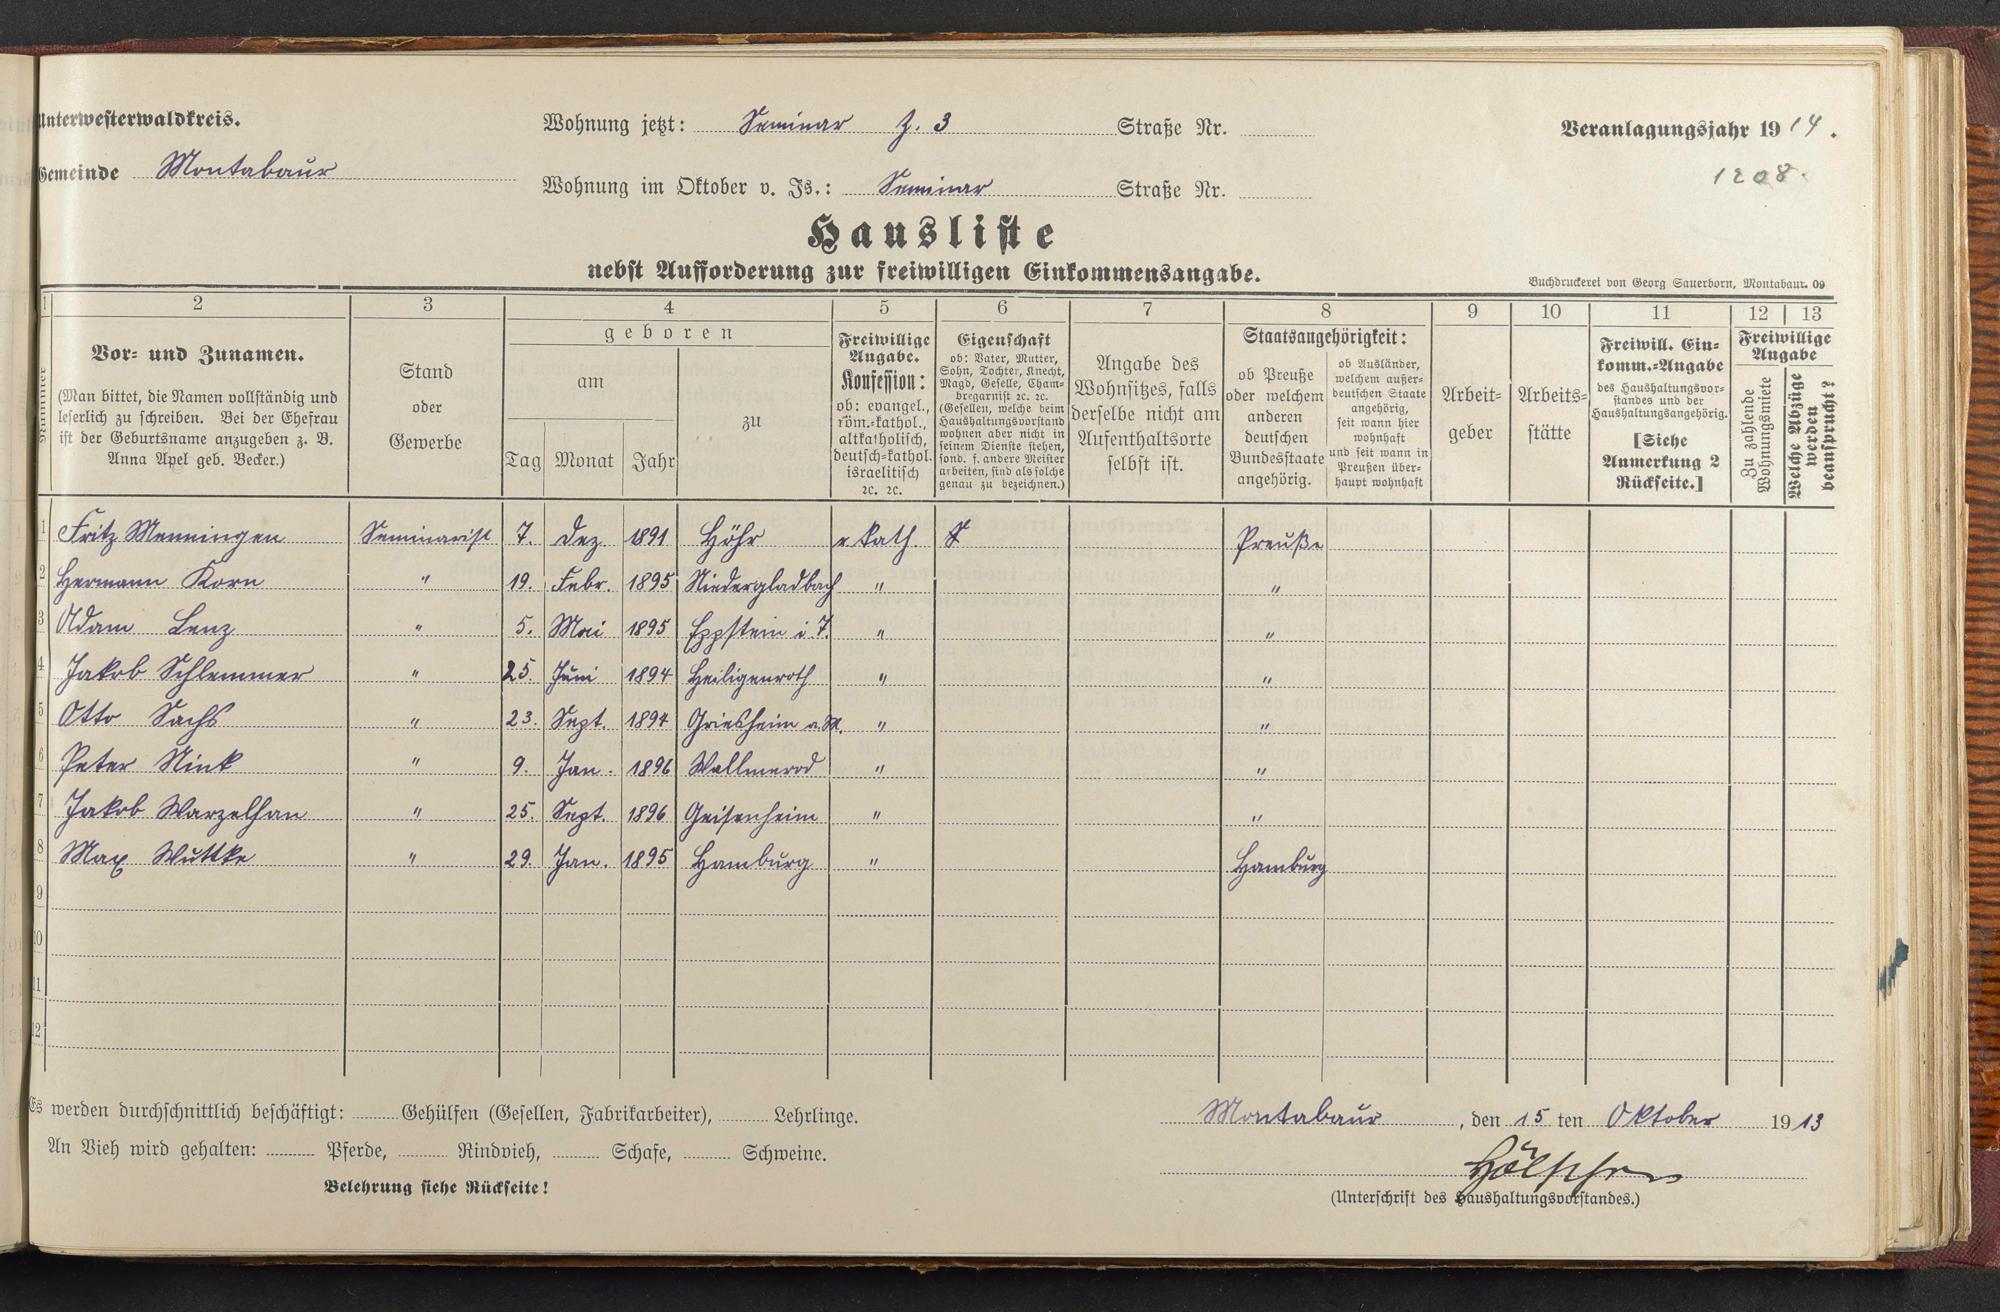 Unterwesterwaldkreis.
Gemeinde Montabaur
Wohnung jetzt: Seminar Z. 3 Straße Nr.
Wohnung im Oktober v. Js.: Seminar Straße Nr.
Veranlagungsjahr 1914.
1208.
Hausliste
nebst Aufforderung zur freiwilligen Einkommensangabe.
Buchdruckerei von Georg Sauerborn, Montabaur. 09
1 2 3 4 5 6 7 8 9 10 11 12 13
Nummer
Vor- und Zunamen.
(Man bittet, die Namen vollständig und
leserlich zu schreiben. Bei der Ehefrau
ist der Geburtsname anzugeben z. B.
Anna Apel geb. Becker.)
Stand
oder
Gewerbe
geboren
am
Tag Monat Jahr
zu
Freiwillige
Angabe.
Konfession:
ob: evangel.,
röm.-kathol.,
altkatholisch,
deutsch-kathol.
israelitisch
2c. 2c.
Eigenschaft
ob: Vater, Mutter,
Sohn, Tochter, Knecht,
Magd, Geselle, Cham-
bregarnist 2c. 2c.
(Gesellen, welche beim
Haushaltungsvorstand
wohnen aber nicht in
seinem Dienste stehen,
sond. f. andere Meister
arbeiten, sind als solche
genau zu bezeichnen.)
Angabe des
Wohnsitzes, falls
derselbe nicht am
Aufenthaltsorte
selbst ist.
Staatsangehörigkeit:
ob Preuße
oder welchem
anderen
deutschen
Bundesstaate
angehörig.
ob Ausländer,
welchem außer-
deutschen Staate
angehörig,
seit wann hier
wohnhaft
und seit wann in
Preußen über-
haupt wohnhaft
Arbeit-
geber
Arbeits-
stätte
Freiwill. Ein-
komm.-Angabe
des Haushaltungsvor-
standes und der
Haushaltungsangehörig.
[Siehe
Anmerkung 2
Rückseite.]
Freiwillige
Angabe
Zu zahlende
Wohnungsmiete
Welche Abzüge
werden
beansprucht?
1 Fritz Menningen Seminarist 7. Dez 1891 Höhr r. kath. S Preuße
2 Hermann Korn " 19. Febr. 1895 Niedergladbach " "
3 Adam Lenz " 5. Mai 1895 Eppstein i. T. " "
4 Jakob Schlemmer " 25. Juni 1894 Heiligenroth " "
5 Otto Sachs " 23. Sept. 1894 Griesheim a. M. " "
6 Peter Nink " 9. Jan. 1896 Wallmerod " "
7 Jakob Warzelhan " 25. Sept. 1896 Geisenheim " "
8 Max Wuttke " 29. Jan. 1895 Hamburg " Hamburg
9
10
11
12
Es werden durchschnittlich beschäftigt: Gehülfen (Gesellen, Fabrikarbeiter), Lehrlinge.
An Vieh wird gehalten: Pferde, Rindvieh, Schafe, Schweine.
Belehrung siehe Rückseite!
Montabaur, den 15 ten Oktober 1913
(Unterschrift des Haushaltungsvorstandes.)